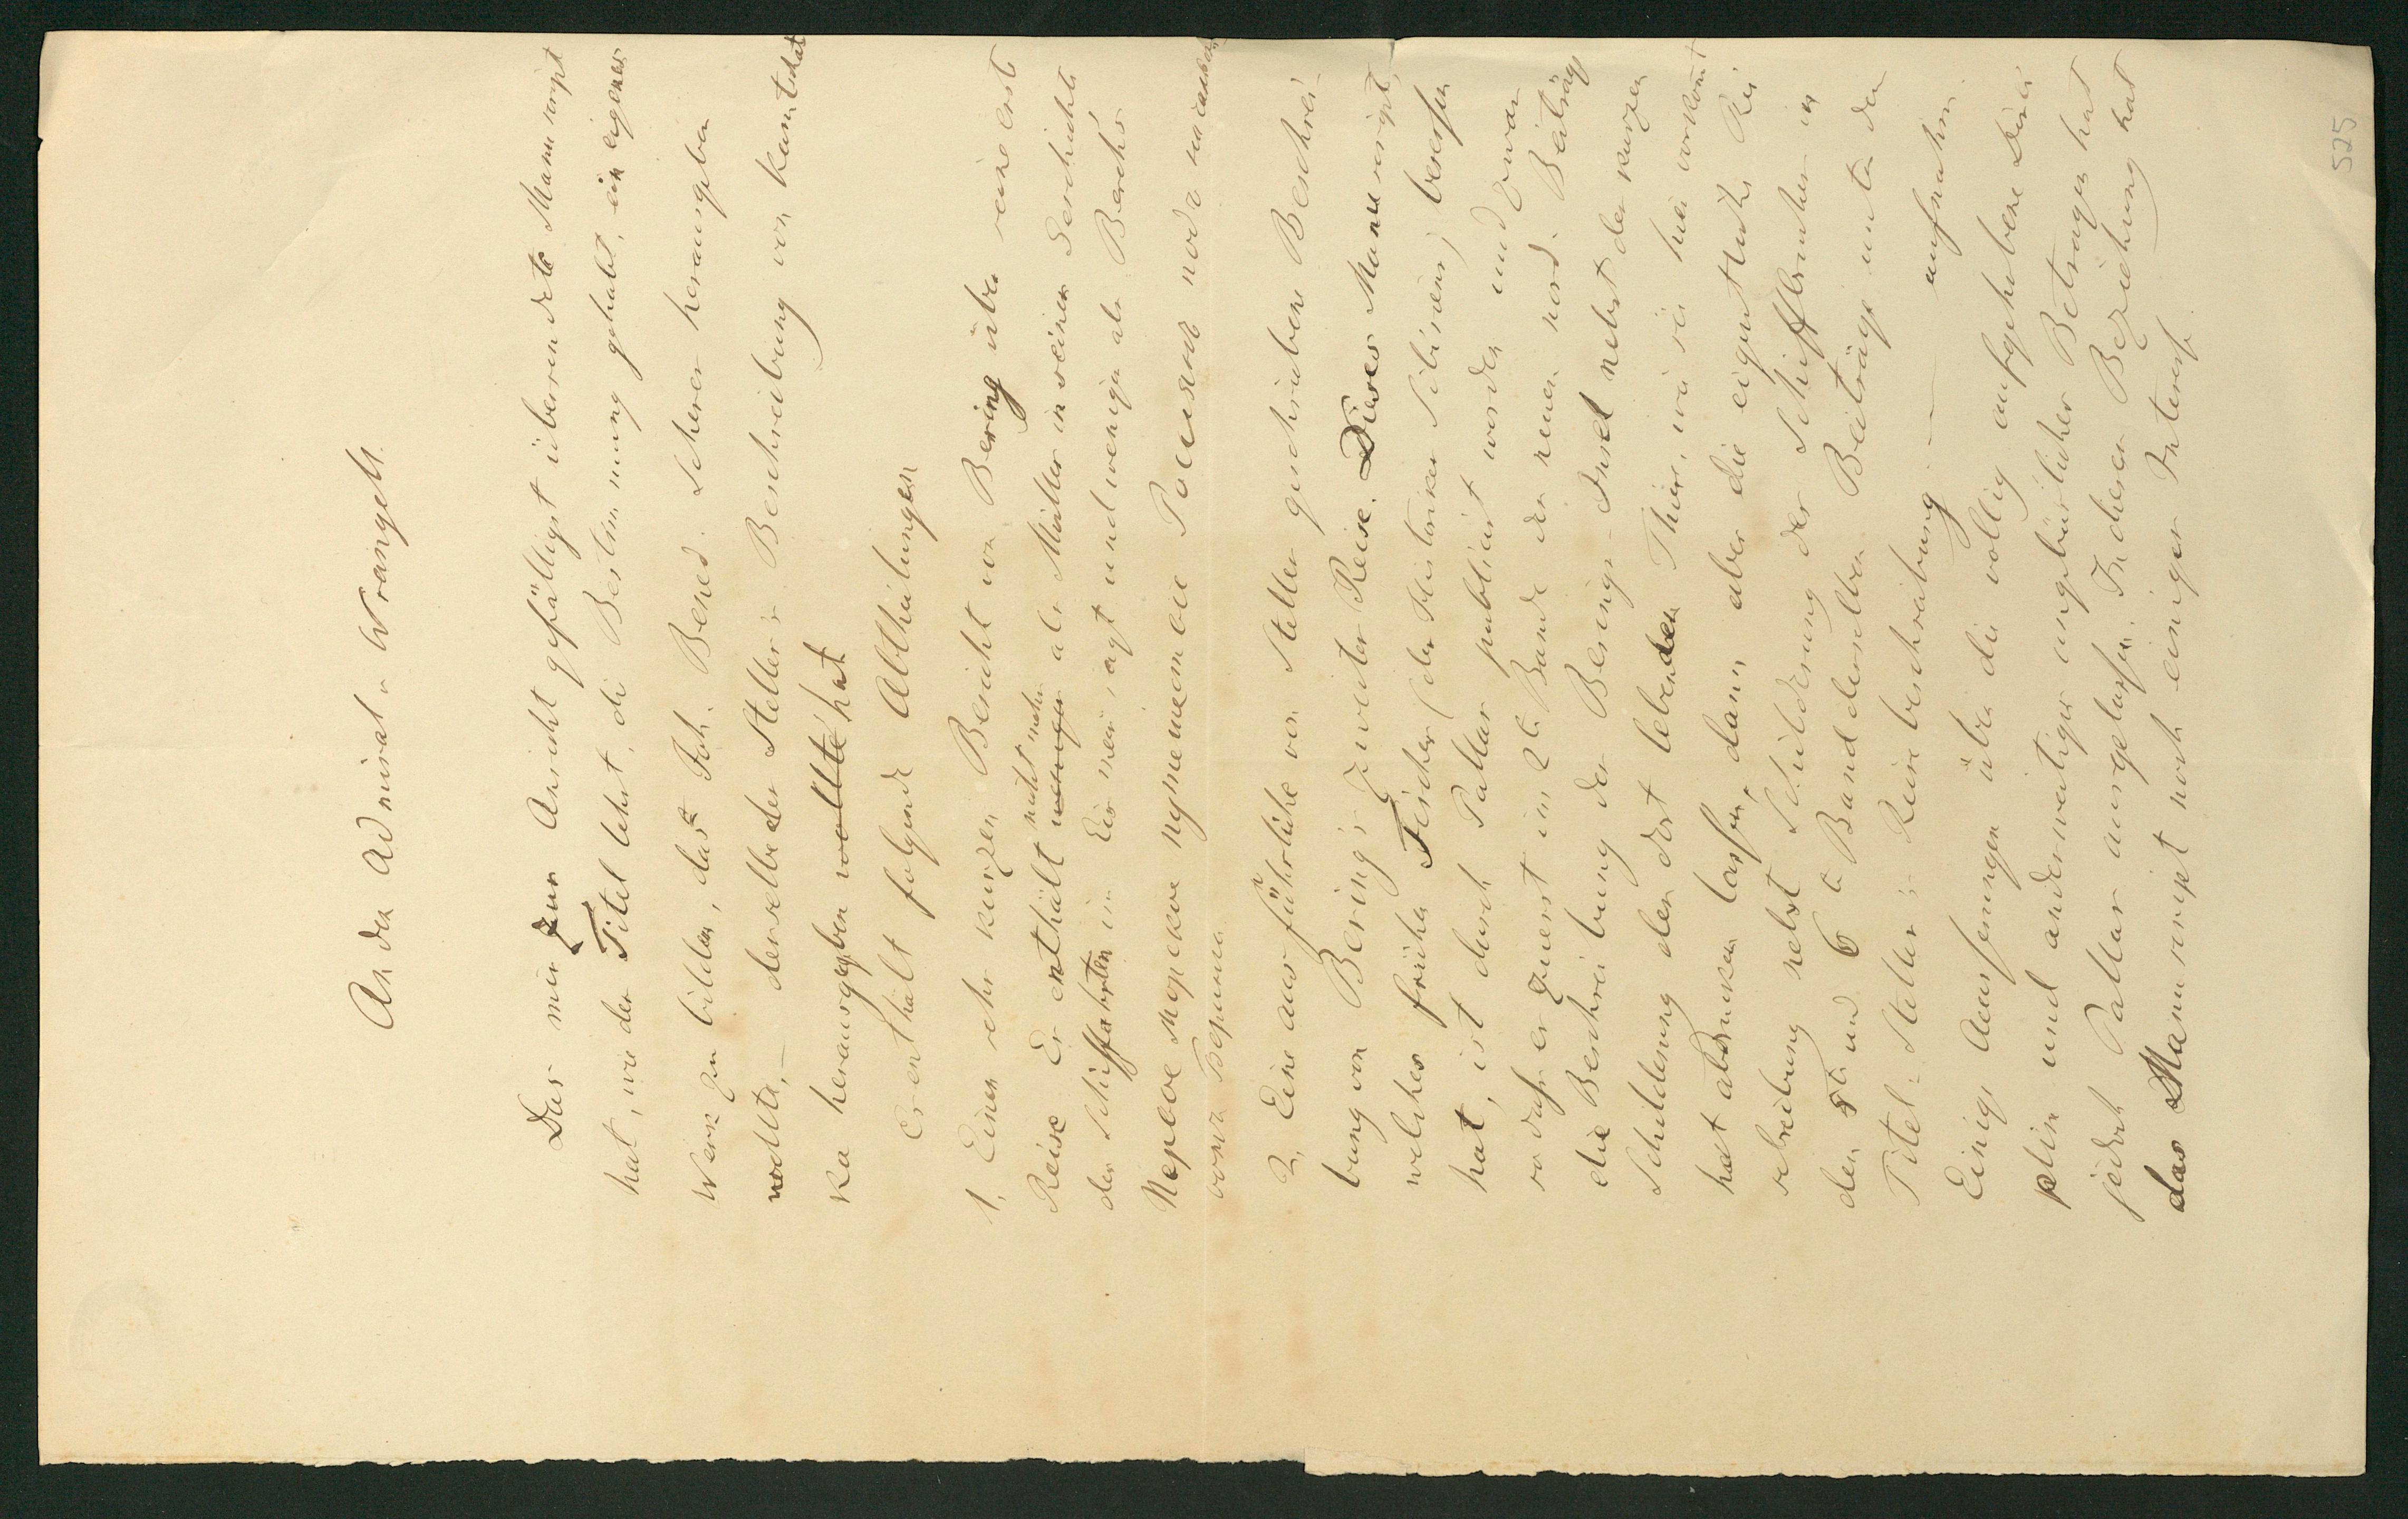 An den Admiral v Wrangell.
Das mir zur Ansicht gefälligst übersendete Manuscript
hat, wie der Titel lehrt, die Bestimmung gehabt, ein eigenes
Werk zu bilden, das Joh. Bened. Scherer herausgeben
wollte, – derselbe der Steller's Beschreibung von Kamtschat
ka herausgegeben wollte hat
Es enthält folgende Abtheilungen
1, Einen sehr kurzen Bericht von Bering über seine erste
Reise. Er enthält weniger nicht mehr als Müller in seiner Geschichte
der Schifffahrten im Eis meer sagt und weniger als Berchs
Первое морское путешествіе Россіянъ
Беринга
2, Eine ausführliche von Steller geschriebene Beschrei-
bung von Bering's zweiter Reise. Dieses Manuscript,
welches früher Fischer (der Historiker Sibiriens) besessen
hat, ist durch Pallas publicirt worden und zwar
so daſs er zuerst im 2t. Bande der neuen nord. Beiträge
die Beschreibung der Berings-Insel nebst der kurzen
Schilderung der dort lebenden Thiere, wie sie hier vorkomt
hat abdrucken lassen, dann aber die eigentliche Rei
sebeschreibung nebst Schilderung der Schiffbrüche in
den 5t. und 6t. Band derselben Beiträge unter dem
Titel: Steller's Reisebeschreibung – – aufnahm.
Einige Aeusserungen über die völlig aufgehobene Disci
plin und anderweitiges ungebürliches Betragen hat
jedoch Pallas ausgelassen. In dieser Beziehung hat
das Manuscript noch einiges Interesse.
525